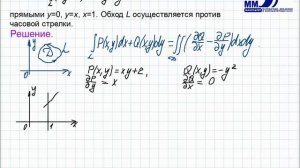 ММ
прямыми y=0, y=x, x=1. Обход L осуществляется против
часовой стрелки.
Решение.
∫_L P(x,y)dx+Q(x,y)dy = ∬(∂Q/∂x − ∂P/∂y)dxdy.
P(x,y)=xy+2, Q(x,y)=-y²
∂P/∂y = x ∂Q/∂x = 0
y
L
x
y
0 1 x